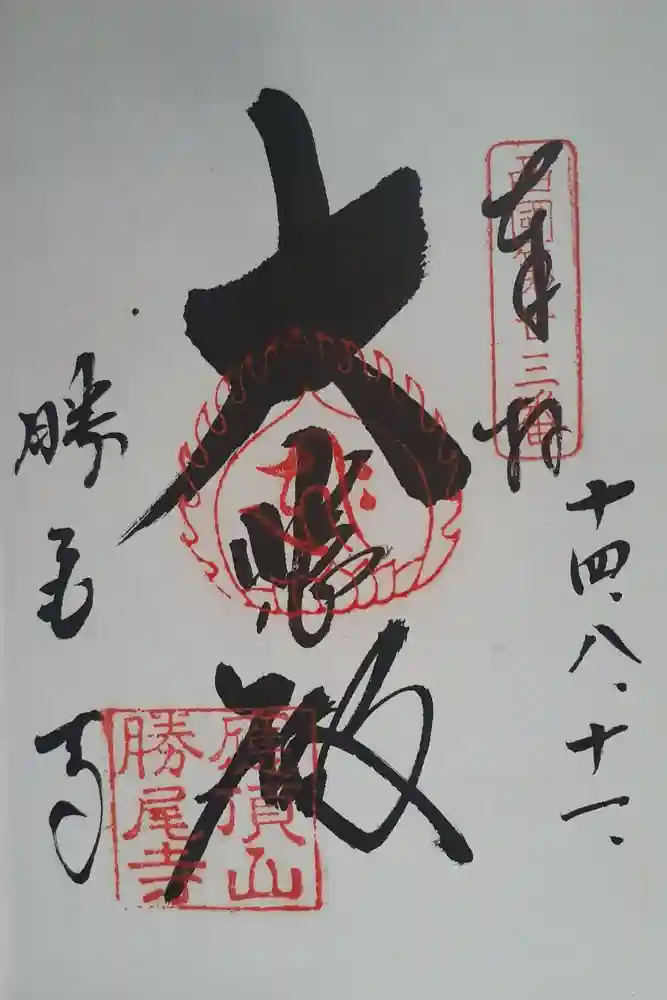 奉拝
西國第廿三番
十四、八、十一、
大悲殿
應頂山
勝尾寺
勝尾寺